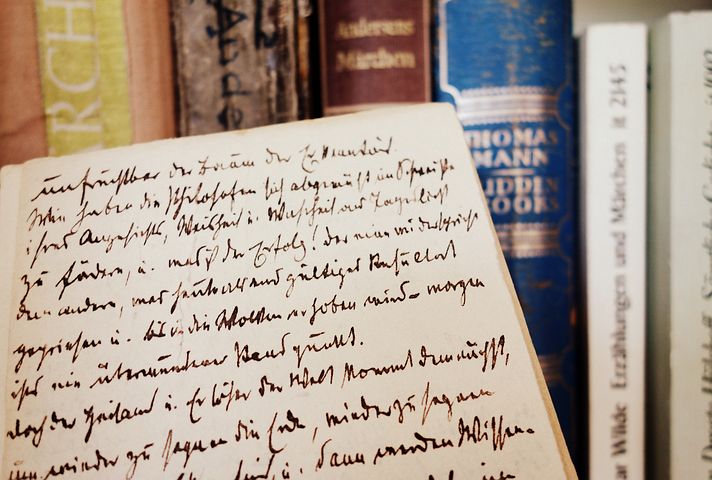 ARCH
Ande
Andersens
Märchen
THOMAS
MANN
UDDEN
OOKS
ar Wilde Erzählungen und Märchen it 2145
unfruchtbar der Baum der Erkenntnis.
Wie haben die Philosofen sich abgemüht im Schweiße
ihres Angesichts, Weisheit u. Wahrheit ans Tageslicht
zu födern, u. was ist der Erfolg! der eine widerspricht
dem andern, was heute als end gültiges Resultat
gepriesen u. bis in die Wolken erhoben wird – morgen
ist es ein überwundener Standpunkt.
doch der Heiland u. Erlöser der Welt kommt demnächst,
um wieder zu segnen die Erde, wieder zu segnen
u. dann werden Wissen-